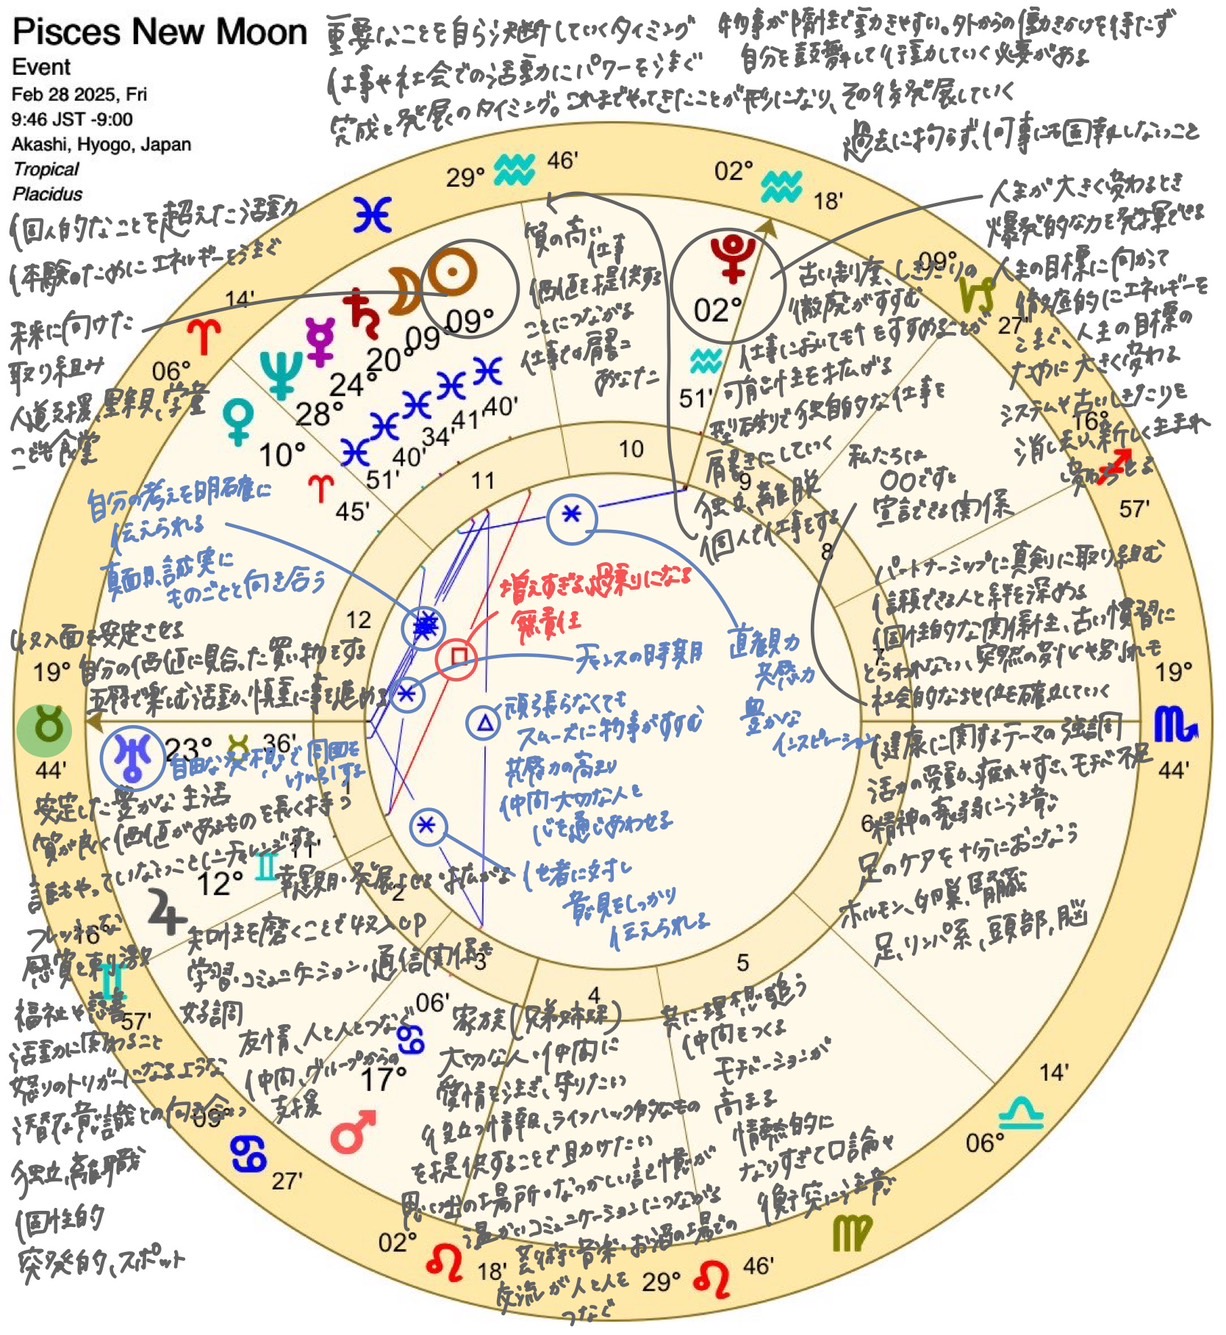 Pisces New Moon
Event
Feb 28 2025, Fri
9:46 JST -9:00
Akashi, Hyogo, Japan
Tropical
Placidus
重要なことを自ら決断していくタイミング
仕事や社会での活動にパワーをそそぐ
完成と発展のタイミング。これまでやってきたことが形になり、その後発展していく
物事が陽性で動きやすい。外からの働きかけを待たず
自分を鼓舞して行動していく必要がある
過去に拘らず、何事にも固執しないこと
個人的なことを超えた活動
体験のためにエネルギーをそそぐ
未来に向けた
取り組み
人道支援、里親、学童
こども食堂
29° ♒ 46'
02° ♒ 18'
09° ♑ 27'
16° ♐ 57'
19° ♏ 44'
14' ♎ 06°
♍
29° ♌ 46'
02° ♌ 18'
09° ♋ 27'
16° ♊ 57'
19° ♉ 44'
14' ♈ 06°
♓
☉ 09° ♓ 40'
☽ 09° ♓ 41'
♄ 20° ♓ 34'
☿ 24° ♓ 40'
♆ 28° ♓ 51'
♀ 10° ♈ 45'
♅ 23° ♉ 36'
♃ 12° ♊ 11'
♂ 17° ♋ 06'
♇ 02° ♒ 51'
質の高い
仕事
価値を提供する
ことにつながる
仕事での肩書
あなた
人生が大きく変わるとき
爆発的な力を発揮できる
人生の目標に向かって
潜在的にエネルギーを
そそぐ、人生の目標の
ために大きく変わる
システムや古いしきたりを
消し去り、新しく生まれ
変わらせる
古い制度、しきたりの
撤廃がすすむ
仕事においてもすすめることが
可能性を拡げる
型破りで独自的な仕事を
肩書きにしていく
独立、離脱
個人で仕事をする
私たちは
〇〇ですと
宣言できる関係
パートナーシップに真剣に取り組む
信頼できる人と絆を深める
個性的な関係性、古い慣習に
とらわれない、突然の変化や別れも
社会的な地位を確立していく
健康に関するテーマの強調
活力の受動、疲れやすさ、モチベ不足
精神の衰弱に注意
足のケアを十分におこなう
ホルモン、卵巣、腎臓
足、リンパ系、頭部、脳
自分の考えを明確に
伝えられる
真面目、誠実に
ものごとと向き合う
増えすぎる、過剰になる
無責任
チャンスの時期
直観力
共感力
豊かな
インスピレーション
頑張らなくても
スムーズに物事がすすむ
共感力の高まり
仲間・大切な人と
心を通じあわせる
他者に対し
意見をしっかり
伝えられる
収入面を安定させる
自分の価値に見合った買い物をする
五感で楽しむ活動、慎重に事を進める
自由な発想で周囲を
安定した豊かな生活
質が良く価値があるものを長く持つ
誰もやっていないことにチャレンジする
フレッシュな
感覚と刺激
福祉や
活動に関わること
怒りのトリガーになるような
潜在意識との向き合い
独立、離職
個性的
突発的、スポット
幸運期・発展させる・拡がる
知性を磨くことで収入UP
学習・コミュニケーション、通信関係も
好調
友情、人と人とつなぐ
仲間、グループからの
支援
家族(兄弟姉妹)
大切な人・仲間に
愛情を注ぎ、守りたい
役立つ情報、ライフハック的なもの
を提供することで助けたい
思い出の場所・なつかしい記憶が
温かいコミュニケーションにつながる
芸術・音楽・お酒の場での
交流が人と人を
つなぐ
共に理想を追う
仲間をつくる
モチベーションが
高まる
情熱的に
なりすぎて口論や
衝突に注意
1
2
3
4
5
6
7
8
9
10
11
12